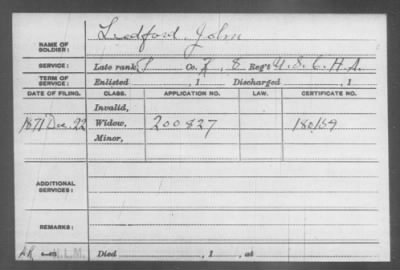 NAME OF SOLDIER: Ledford, John
SERVICE: Late rank Co. K, 8 Reg't U.S.C.H.A.
TERM OF SERVICE: Enlisted , 1 Discharged , 1
DATE OF FILING. CLASS. APPLICATION NO. LAW. CERTIFICATE NO.
Invalid,
1871 Dec. 22 Widow, 200827 180159
Minor,
ADDITIONAL SERVICES:
REMARKS:
Died , 1 , at